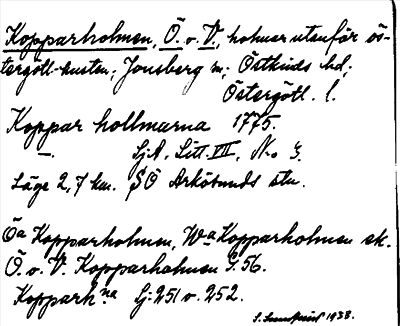 Kopparholmen, Ö. o V., holmar utanför ös-
tergötl-kusten; Jonsberg sn; Östkinds hd;
Östergötl. l.
Koppar hollmarna 1775.
—. Sj.A. Litt. VII, No 3.
Läge 2,7 km. SO Arkösunds stn.
Öa Kopparholmen, Wa Kopparholmen sk.
Ö. o. V. Kopparholmen G. 56.
Kopparh:na Sj: 251 o. 252.
1938.